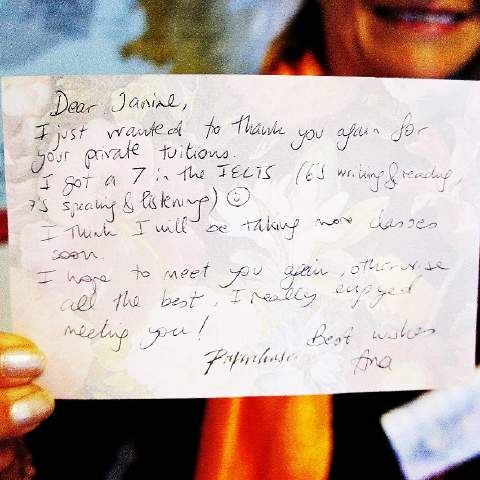 Dear Janine,
I just wanted to thank you again for
your private tuitions.
I got a 7 in the IELTS (6's writing & reading,
7's speaking & listening) ☺
I think I will be taking more classes
soon.
I hope to meet you again, otherwise
all the best, I really enjoyed
meeting you!
Best wishes
Ana